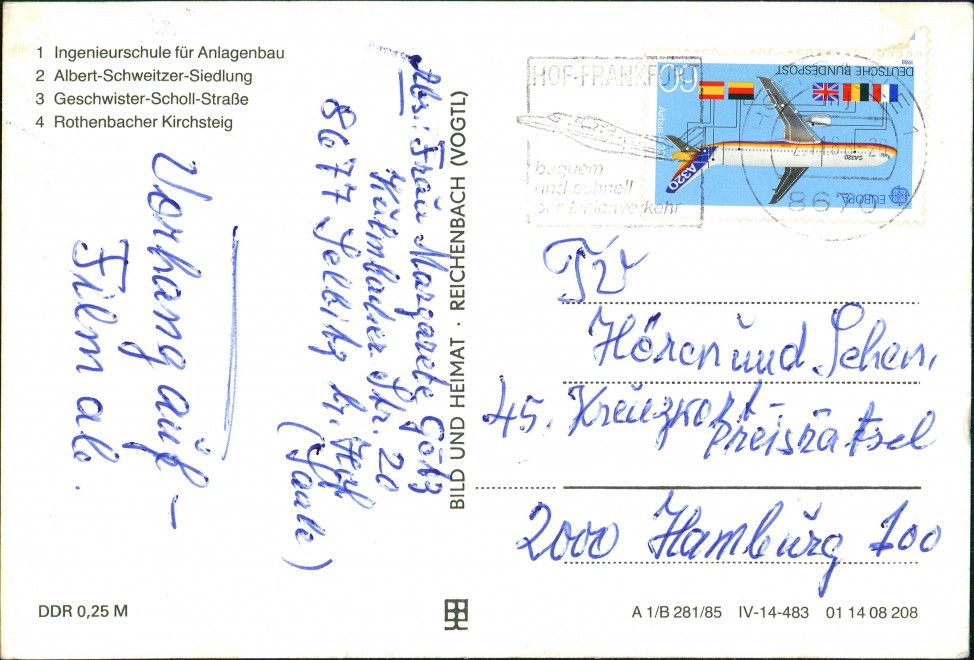 1 Ingenieurschule für Anlagenbau
2 Albert-Schweitzer-Siedlung
3 Geschwister-Scholl-Straße
4 Rothenbacher Kirchsteig
Vorhang auf –
Film ab.
Abs.: Frau Margarete Götz
Kulmbacher Str. 20
8677 Selbitz b. Hof
(Saale)
BILD UND HEIMAT · REICHENBACH (VOGTL)
HOF-FRANKFURT
bequem
und schnell
per Linienverkehr
8670
1988
DEUTSCHE BUNDESPOST
60
Airbus A320
A320
EUROPA
TV
Hören und Sehen,
45. Kreuzwort-
preisrätsel
2000 Hamburg 100
DDR 0,25 M
A 1/B 281/85 IV-14-483 01 14 08 208